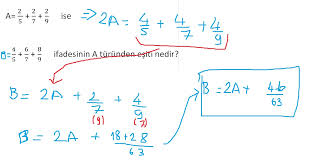 A= 2/5 + 2/7 + 2/9 ise => 2A = 4/5 + 4/7 + 4/9
B= 4/5 + 6/7 + 8/9 ifadesinin A türünden eşiti nedir?
B = 2A + 2/7 + 4/9
(9) (7)
B = 2A + 18+28/63
B = 2A + 46/63